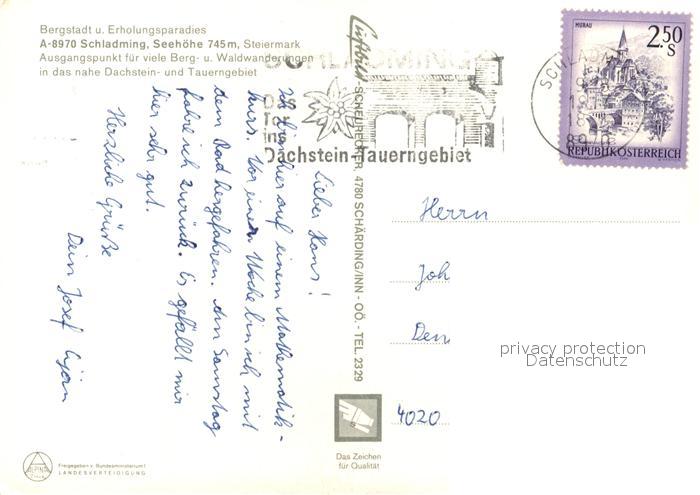 Bergstadt u. Erholungsparadies
A-8970 Schladming, Seehöhe 745 m, Steiermark
Ausgangspunkt für viele Berg- u. Waldwanderungen
in das nahe Dachstein- und Tauerngebiet
SCHLADMING
Das
Tor
ins
Dachstein-Tauerngebiet
MURAU
2.50
S
REPUBLIK ÖSTERREICH
Luftbild
SCHEURECKER, 4780 SCHÄRDING/INN - OÖ. - TEL. 2329
Lieber Hans!
Ich bin hier auf einem Mathematik-
kurs. Vor einer Woche bin ich mit
dem Rad hergefahren. Am Samstag
fahre ich zurück. Es gefällt mir
hier sehr gut.
Herzliche Grüße
Dein Josef
Herrn
Joh
Den
4020
privacy protection
Datenschutz
Das Zeichen
für Qualität
ALPINA
Freigegeben v. Bundesministerium f.
LANDESVERTEIDIGUNG